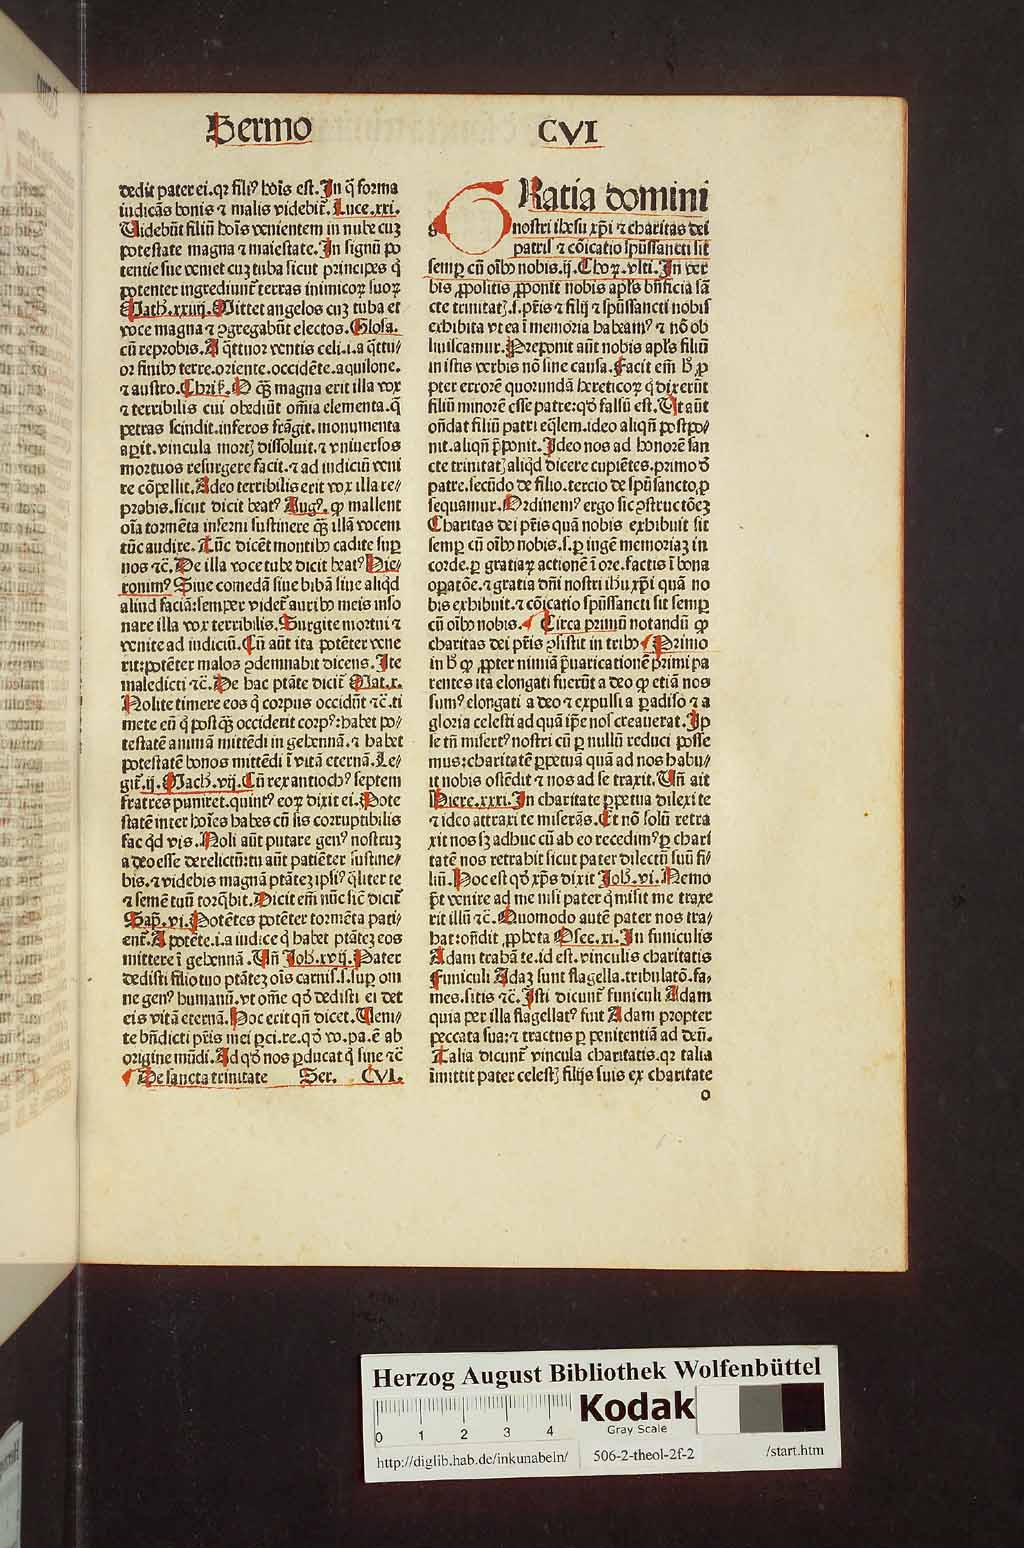 Sermo
CVI
dedit pater ei.qꝛ fili⁹ hoı̄s est.In q̄ forma
iudicās bonis ⁊ malis videbit̄.Luce.xxi.
Videbūt filiū hoı̄s venientem in nube cuʒ
potestate magna ⁊ maiestate.In signū po
tentie sue veniet cuʒ tuba sicut principes q̇
potenter ingrediunt̄ terras inimicoꝝ suoꝝ
Math.xxiiij.Mittet angelos cuʒ tuba et
voce magna ⁊ ꝯgregabūt electos.Glosa.
cū reprobis.A q̄ttuor ventis celi.i.a q̄ttu⸗
or finibꝰ terre.oriente.occidēte.aquilone.
⁊ austro.Chris̄.O q̄ꝫ magna erit illa vox
⁊ terribilis cui obediūt om̄ia elementa.q̄
petras scindit.inferos frāgit.monumenta
aꝑit.vincula mortꝭ dissoluit.⁊ vniuersos
mortuos resurgere facit.⁊ ad iudiciū veni
re cōpellit.Adeo terribilis erit vox illa re⸗
probis.sicut dicit beat⁹ Aug⁹.ꝙ mallent
oı̄a tormēta inferni sustinere q̄ꝫ illā vocem
tūc audire.Tūc dicēt montibꝰ cadite suꝑ
nos ⁊c̄.De illa voce tube dicit beat⁹ Hie⸗
ronim⁹ Siue comedā siue bibā siue aliqd̄
aliud faciā:semper videt̄ auribꝰ meis inso
nare illa vox terribilis.Surgite mortui ⁊
venite ad iudiciū.Cū aūt ita potēter vene
rit:potēter malos ꝯdemnabit dicens.Ite
maledicti ⁊c̄.De hac ptāte dicit̄ Mat.x.
Nolite timere eos q̇ corpus occidūt ⁊c̄.ti
mete eū q̇ postq̄ꝫ occiderit corp⁹:habet po⸗
testatē animā mittēdi in gehennā.⁊ habet
potestatē bonos mittēdi ī vitā eternā.Le⸗
git̄.ij.Mach.vij.Cū rex antioch⁹ septem
fratres puniret.quint⁹ eoꝝ dixit ei.Pote
statē inter hoı̄es habes cū sis corruptibilis
fac qd̄ vis.Noli aūt putare gen⁹ nostruʒ
a deo esse derelictū:tu aūt patiēter sustine⸗
bis.⁊ videbis magnā ptātēʒ ipsi⁹ q̄liter te
⁊ semē tuū torq̄bit.Dicit em̄ nūc sic̄ dicit̄
Sap̄.vi.Potētes potēter tormēta pati⸗
ent̄.A potēte.i.a iudice q̇ habet ptātēʒ eos
mittere ī gehennā.Vn̄ Joh.xvij.Pater
dedisti filio tuo ptātēʒ oı̄s carnis.s.suꝑ om
ne gen⁹ humanū.vt om̄e qd̄ dedisti ei det
eis vitā eternā.Hoc erit qn̄ dicet.Veni⸗
te bn̄dicti pr̄is mei ꝑci.re.qd̄ vo.pa.ē ab
origine mūdi.Ad qd̄ nos ꝑducat q̇ sine ⁊c̄
De sancta trinitate Ser. CVI.
GRatia domini
nostri ihesu xp̄i ⁊ charitas dei
patris ⁊ cōicatio spūssancti sit
semꝑ cū oı̄bꝰ nobis.ij.Choꝝ.vlti.In ver
bis ꝓpositis ꝓponit nobis apl̄s bn̄ficia sā
cte trinitatꝭ.s.pr̄is ⁊ filij ⁊ spūssancti nobis
exhibita vt ea ī memoria habeam⁹ ⁊ nō ob
liuiscamur.Preponit aūt nobis apl̄s filiū
in istis verbis nō sine causa.Facit em̄ h̄ ꝓ
pter errorē quorundā hereticoꝝ q̇ dixerūt
filiū minorē esse patre:qd̄ falsū est.Vt aūt
on̄dat filiū patri eq̄lem.ideo aliqn̄ postpo⸗
nit.aliqn̄ p̄ponit.Ideo nos ad honorē san
cte trinitatꝭ aliqd̄ dicere cupiētes.primo ō
patre.secūdo de filio.tercio de spūsancto.ꝓ
sequamur.Ordinem⁹ ergo sic ꝯstructōeʒ
Charitas dei pr̄is quā nobis exhibuit sit
semꝑ cū oı̄bꝰ nobis.s.ꝑ iugē memoriaʒ in
corde.ꝑ gratiaꝝ actionē ī ore.factis ī bona
oꝑatōe.⁊ gratia dn̄i nostri ihū xp̄i quā no
bis exhibuit.⁊ cōicatio spūssancti sit semꝑ
cū oı̄bꝰ nobis. Circa primū notandū ꝙ
charitas dei pr̄is ꝯsistit in tribꝰ Primo
in h̄ ꝙ ꝓpter nimiā p̄uaricationē primi pa
rentes ita elongati fuerūt a deo ꝙ etiā nos
sum⁹ elongati a deo ⁊ expulsi a ꝑadiso ⁊ a
gloria celesti ad quā ip̄e nos creauerat.Ip
se tn̄ misert⁹ nostri cū ꝑ nullū reduci posse
mus:charitatē ꝑpetuā quā ad nos habu⸗
it nobis ostēdit ⁊ nos ad se traxit.Vn̄ ait
Hiere.xxxi.In charitate ꝑpetua dilexi te
⁊ ideo attraxi te miserās.Et nō solū retra
xit nos sʒ adhuc cū ab eo recedim⁹ ꝑ chari
tatē nos retrahit sicut pater dilectū suū fi⸗
liū.Hoc est qd̄ xp̄s dixit Joh.vi.Nemo
p̄t venire ad me nisi pater q̇ misit me traxe
rit illū ⁊c̄.Quomodo autē pater nos tra⸗
hat:on̄dit ꝓpheta Osee.xi.In funiculis
Adam trahā te.id est.vinculis charitatis
Funiculi Adaʒ sunt flagella.tribulatō.fa⸗
mes.sitis ⁊c̄.Isti dicunt̄ funiculi Adam
quia per illa flagellat⁹ fuit Adam propter
peccata sua:⁊ tractus ꝑ penitentiā ad deū.
Talia dicunt̄ vincula charitatis.qꝛ talia
īmittit pater celestꝭ filijs suis ex charitate
o
Herzog August Bibliothek Wolfenbüttel
0 1 2 3 4
Kodak
Gray Scale
http://diglib.hab.de/inkunabeln/
506-2-theol-2f-2
/start.htm